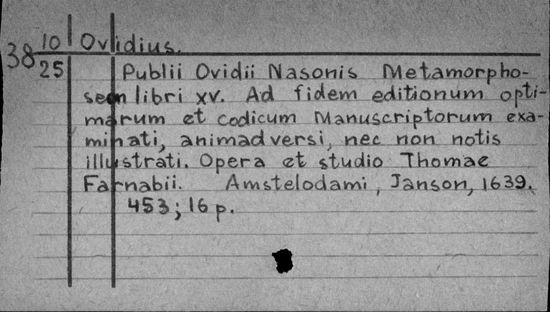 38 10 Ovidius.
25 Publii Ovidii Nasonis Metamorpho-
seon libri xv. Ad fidem editionum opti-
marum et codicum Manuscriptorum exa-
minati, animadversi, nec non notis
illustrati. Opera et studio Thomae
Farnabii. Amstelodami, Janson, 1639.
453; 16 p.